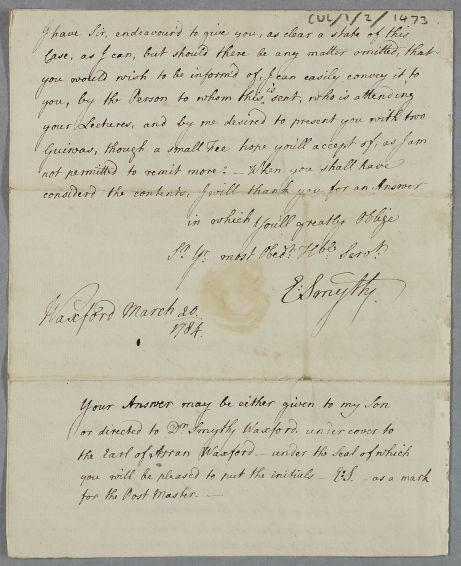 CUL/1/2/1473
I have Sir, endeavourd to give you, as clear a state of this
Case, as I can, but should there be any matter omitted, that
you would wish to be inform'd of, I can easily convey it to
you, by the Person to whom this, is sent, who is attending
your Lectures, and by me desired to present you with two
Guineas, though a small Fee hope you'll accept of, as I am
not permitted to remit more: — When you shall have
considerd the contents, I will thank you for an Answer
in which you'll greatly Oblige
Sr. Yr. most Obedt. Hble Servt.
E: Smythy
Waxford March 20.
1784.
Your Answer may be either given to my Son
or directed to Dr. Smythy Waxford under cover to
the Earl of Arran Waxford — under the Seal of which
you will be pleased to put the initials — E:S. — as a mark
for the Post Master. —